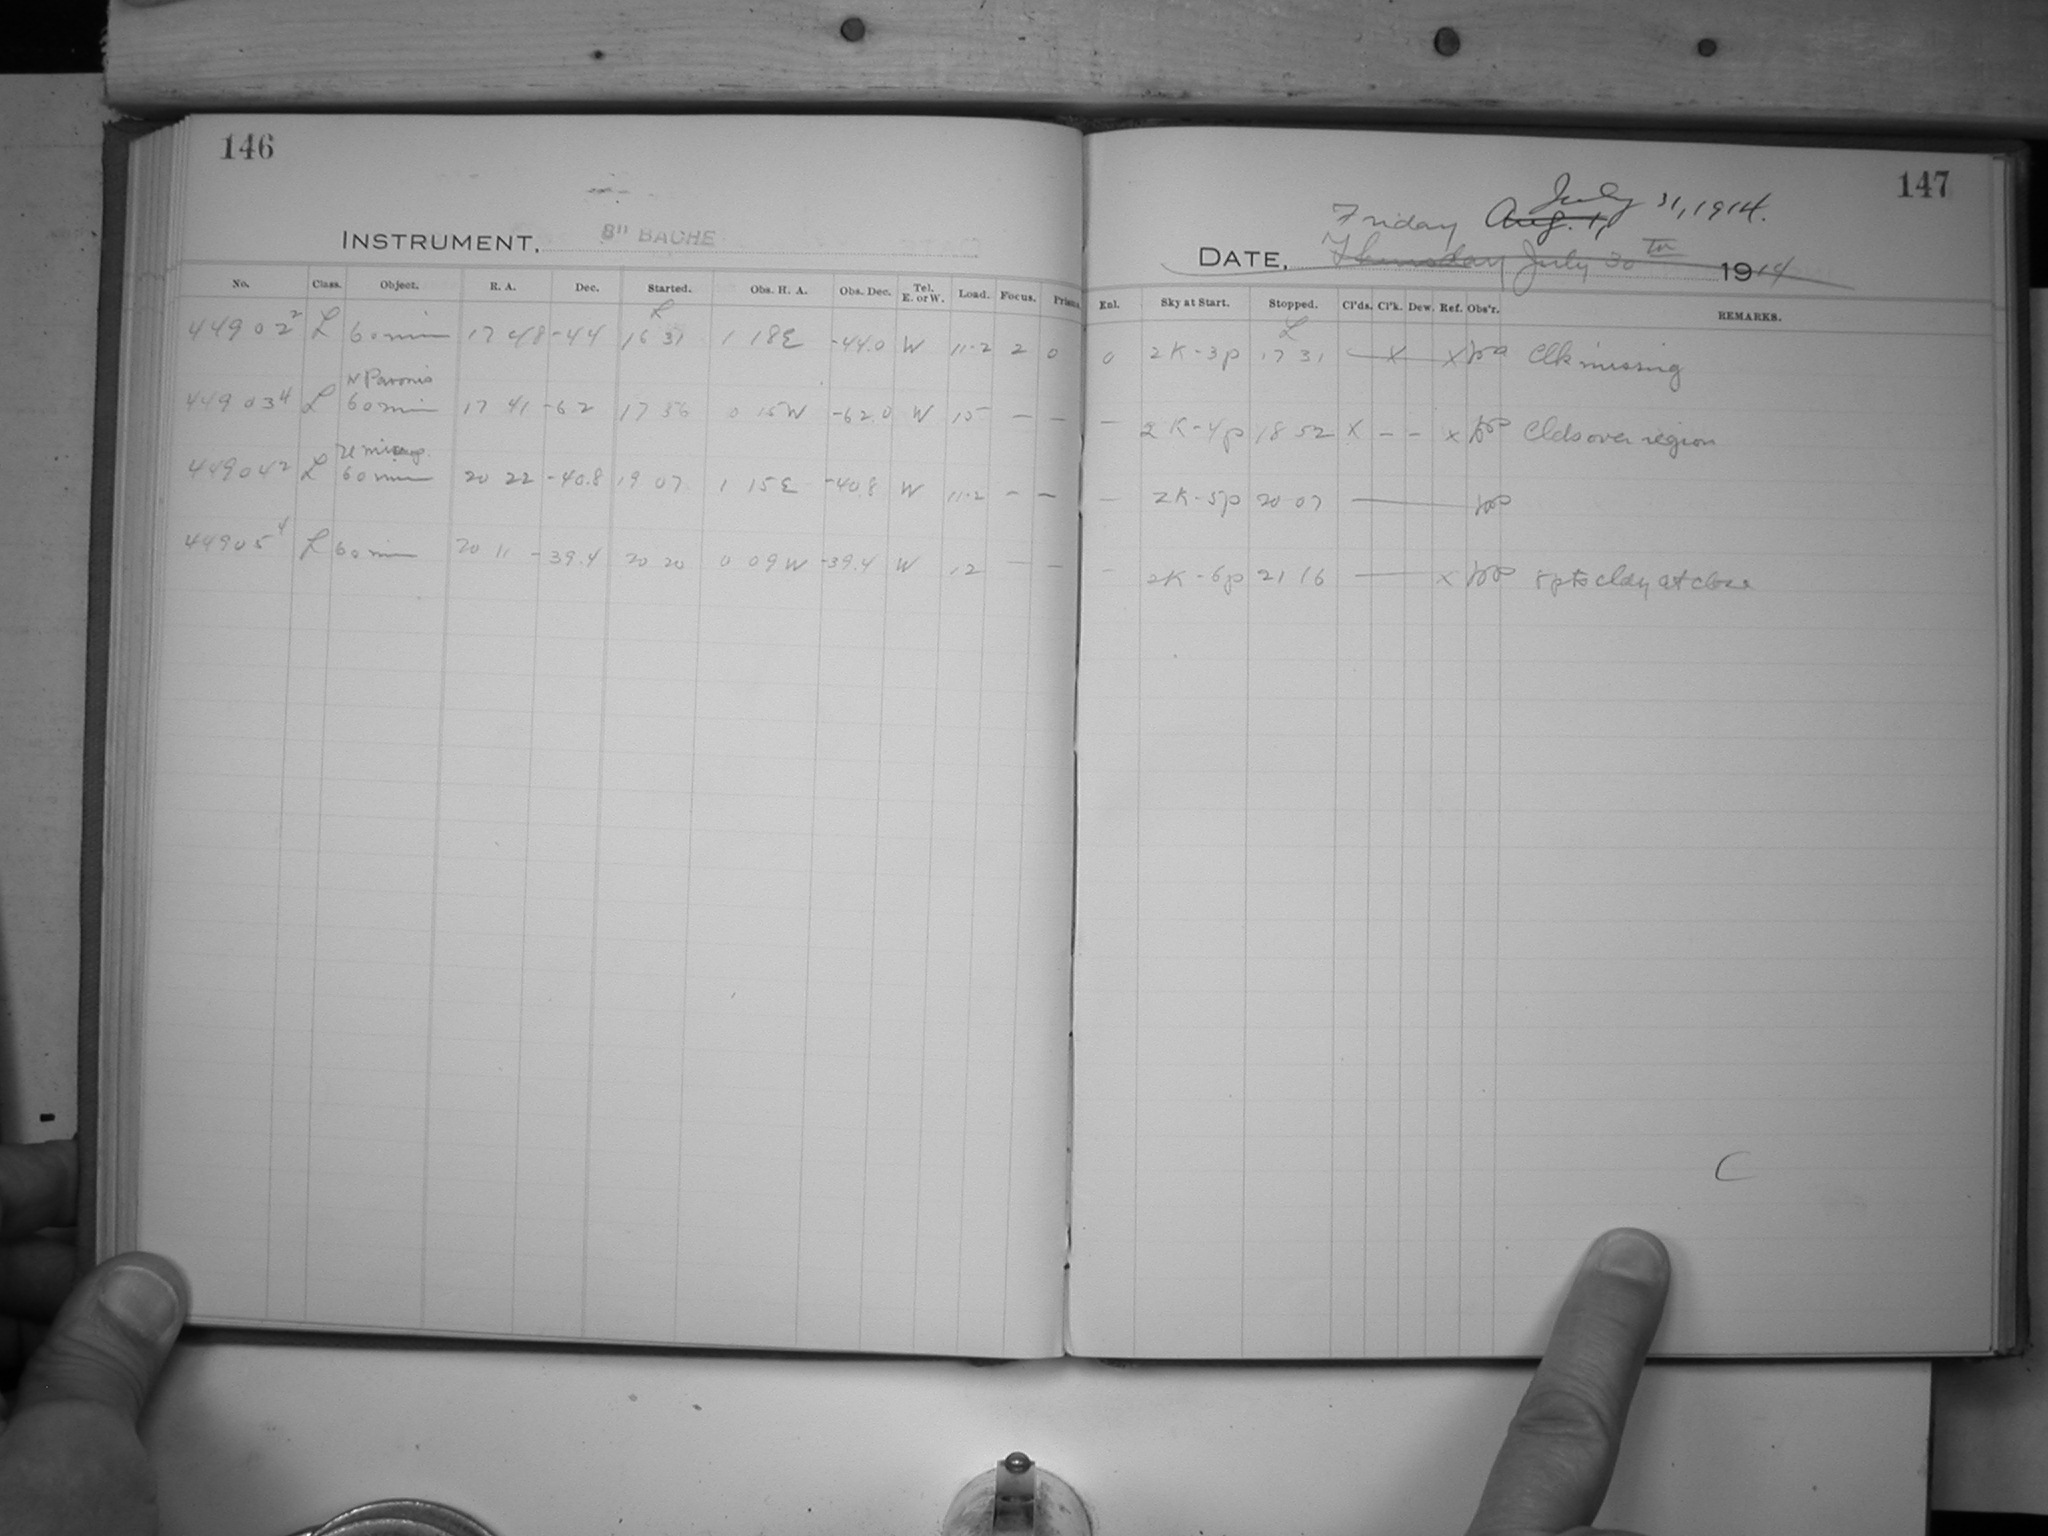 146
INSTRUMENT, 8" BACHE
No. Class. Object. R. A. Dec. Started. Obs. H. A. Obs. Dec. Tel. E. or W. Load. Focus. Prism.
L
44902² L 60 min 17 48 -44 16 31 1 18E -44.0 W 11.2 2 0
N Pavonis
44903⁴ L 60 min 17 41 -62 17 56 0 15W -62.0 W 15 — —
44904² L 60 min 20 22 -40.8 19 07 1 15E -40.8 W 11.2 — —
44905⁴ L 60 min 20 11 -39.4 20 20 0 09W -39.4 W 12 — —
147
July 31, 1914.
Friday Aug. 1,
DATE, Thursday July 30th 1914
Enl. Sky at Start. Stopped. Cl'ds. Cl'k. Dew. Ref. Obs'r. REMARKS.
L
0 2K-3p 17 31 — X — X Clk missing
— 2K-4p 18 52 X — — X Clds over region
— 2K-5p 20 07 —
— 2K-6p 21 16 — X cldy at close
C